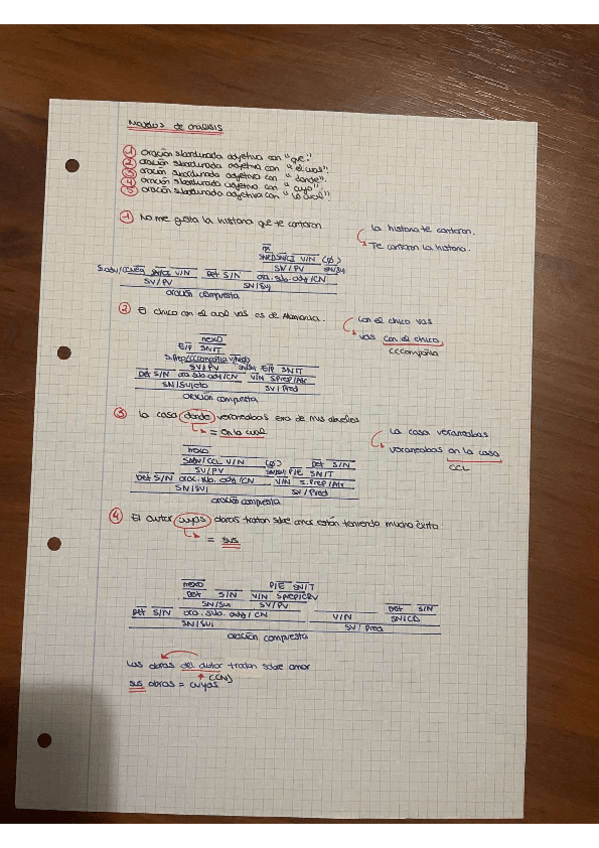 Modelos de análisis
1 oración subordinada adjetiva con "que".
2 oración subordinada adjetiva con "el cual".
3 oración subordinada adjetiva con "donde".
4 oración subordinada adjetiva con "cuyo".
5 oración subordinada adjetiva con "lo cual".
1 No me gusta la historia que te contaron
La historia te contaron.
Te contaron la historia.
V/N (ø)
SV/PV SN/Suj
V/N Det S/N ora.sub.adj/CN
SV/PV SN/Suj
oración compuesta
2 El chico con el cual vas es de Alemania.
con el chico vas
vas con el chico
CCCompañía
nexo
E/P SN/T
SV/PV E/P SN/T
Det S/N ora.sub.adj/CN V/N SPrep/Atr
SN/Sujeto SV/Pred
oración compuesta
3 La casa donde veraneabas era de mis abuelos
= en la cual
La casa veraneabas
veraneabas en la casa
CCL
nexo
SAdv/CCL V/N (ø) Det S/N
SV/PV P/E SN/T
Det S/N orac.sub.adj/CN V/N S.Prep/Atr
SN/Suj SV/Pred
oración compuesta
4 El autor cuyas obras tratan sobre amor están teniendo mucho éxito
= sus
nexo P/E SN/T
Det S/N V/N SPREP/CRV
SN/Suj SV/PV Det S/N
Det S/N ora.sub.adj/CN V/N SN/CD
SN/Suj SV/Pred
oración compuesta
Las obras del autor tratan sobre amor
(CN)
sus obras = cuyas